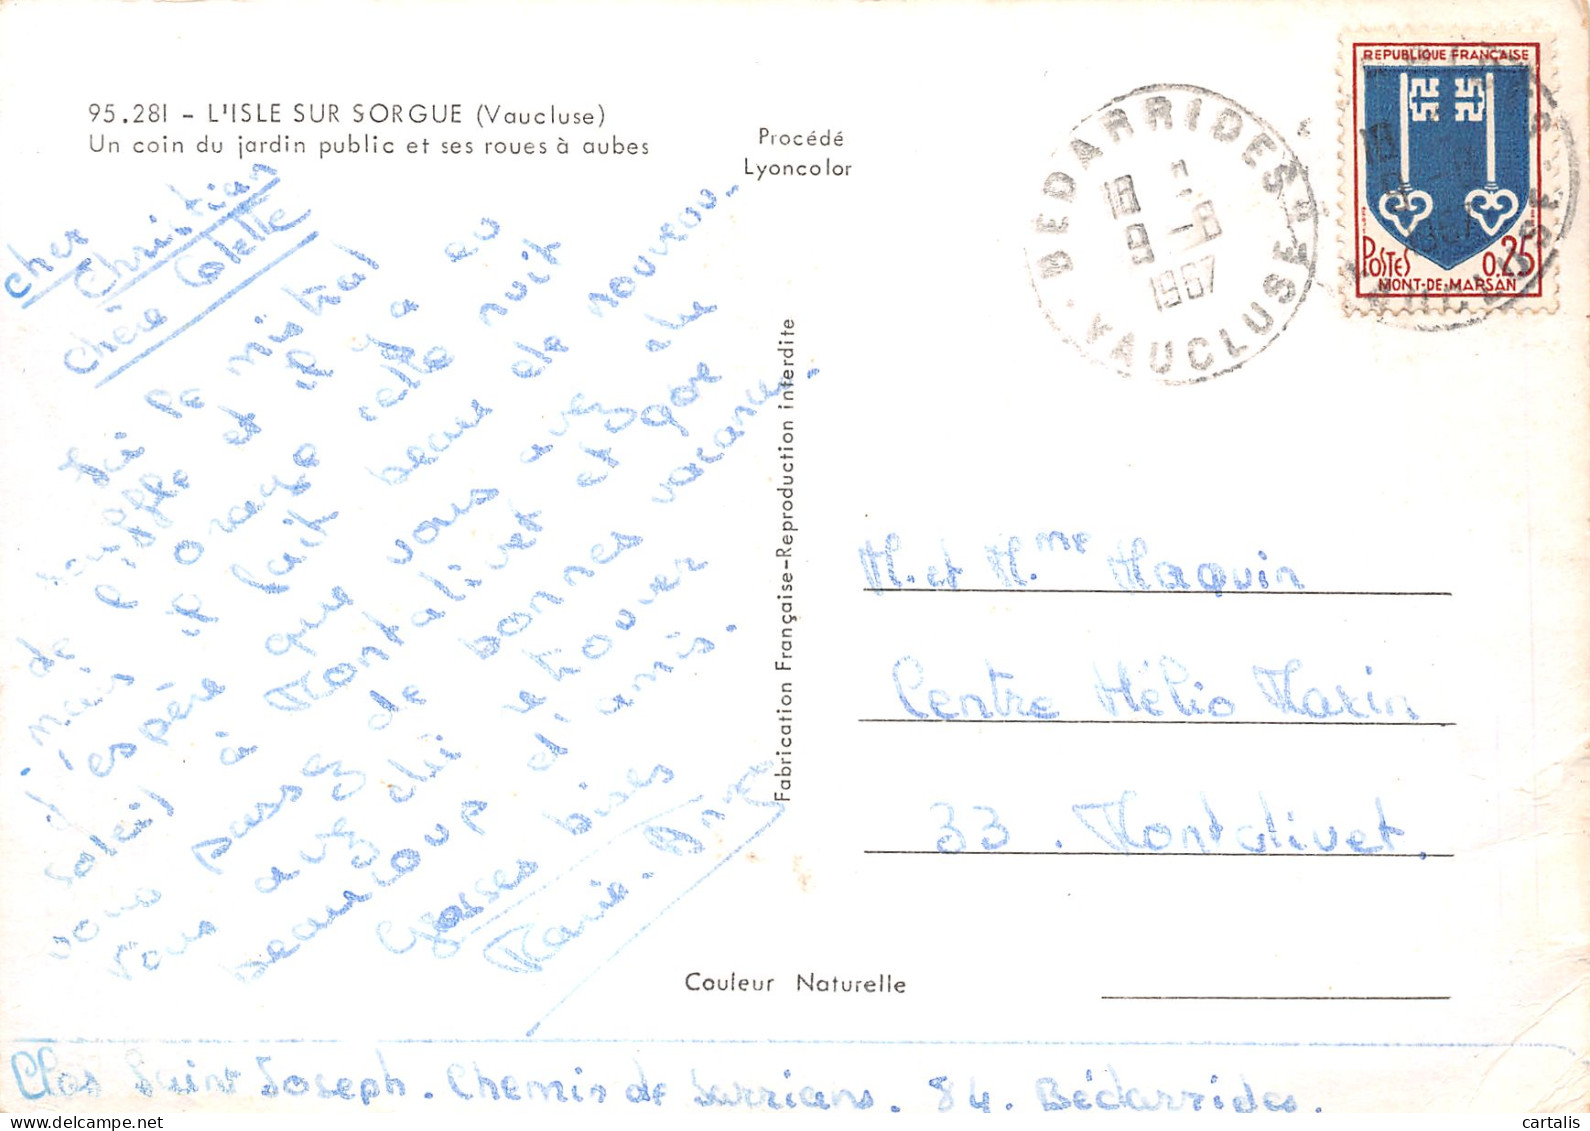 95.281 - L'ISLE SUR SORGUE (Vaucluse)
Un coin du jardin public et ses roues à aubes
Procédé
Lyoncolor
REPUBLIQUE FRANÇAISE
POSTES 0.25
MONT-DE-MARSAN
BEDARRIDES
18 H
9 -8
1967
VAUCLUSE
Cher Christian
Chère Colette
Ici le mistral
souffle et il y a eu
de l'orage cette nuit
mais il fait beau de nouveau.
J'espère que vous avez du
soleil à Montalivet et que
vous passez de bonnes vacances.
Vous avez dû retrouver
beaucoup d'amis.
Grosses bises
Marie-Ange
Fabrication Française-Reproduction interdite
M. et Mme Maquin
Centre Hélio Marin
33. Montalivet.
Couleur Naturelle
Clos Saint Joseph. Chemin de Sarrians. 84. Bédarrides.
cartalis